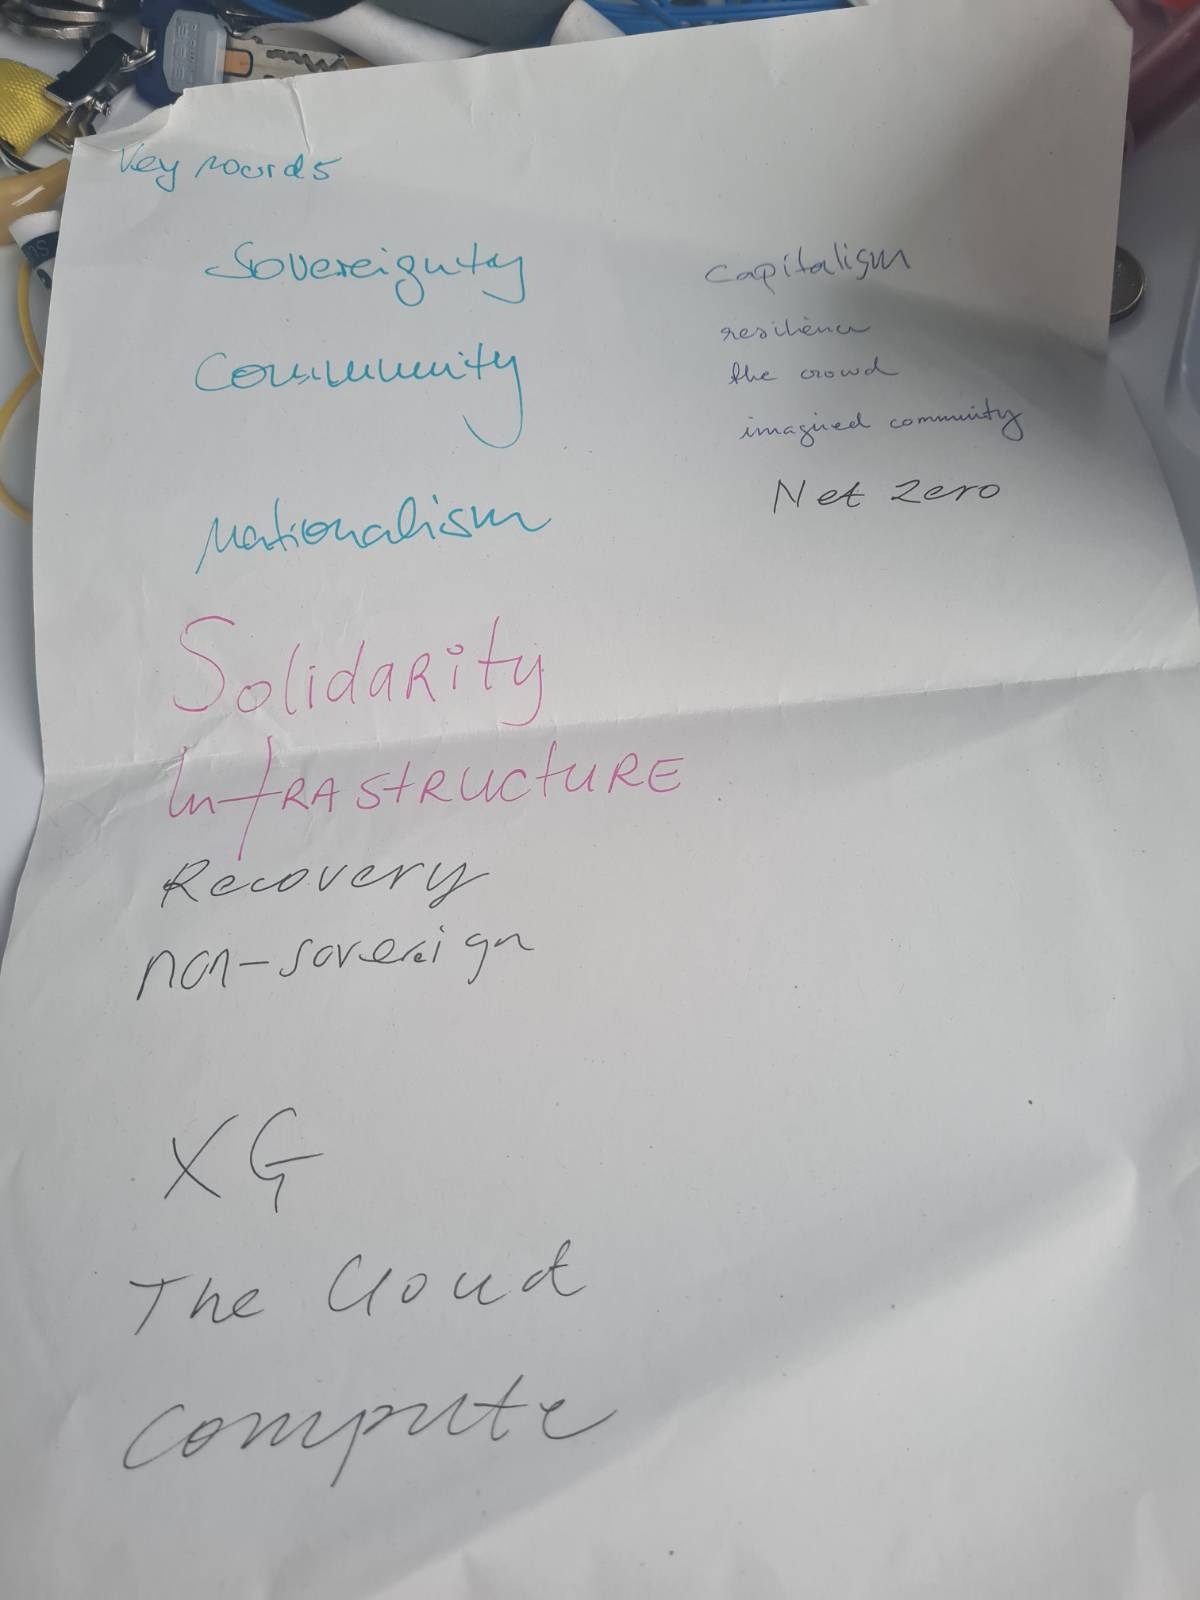 Key words
Sovereignty
Community
Nationalism
Solidarity
InfRAstRuctuRE
Recovery
non-sovereign
XG
The Cloud
compute
Capitalism
resilience
the crowd
imagined community
Net Zero